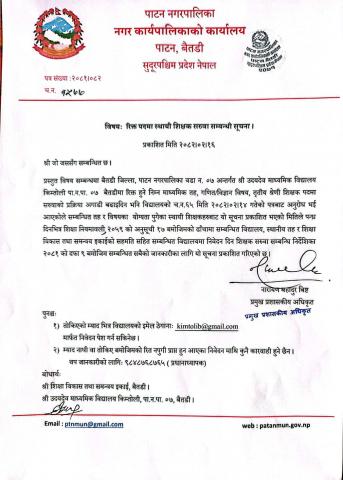 पाटन नगरपालिका
नगर कार्यपालिकाको कार्यालय
पाटन, बैतडी
सुदूरपश्चिम प्रदेश नेपाल
पत्र संख्या :२०८१/०८२
च.न.
विषयः रिक्त पदमा स्थायी शिक्षक सरुवा सम्बन्धी सूचना।
प्रकाशित मिति २०८२।०२।१६
श्री जो जससँग सम्बन्धित छ।
प्रस्तुत विषय सम्बन्धमा बैतडी जिल्ला, पाटन नगरपालिका वडा न. ०७ अन्तर्गत श्री उदयदेव माध्यमिक विद्यालय
किम्तोली पा.न.पा. ०७ बैतडीमा रिक्त हुने निम्न माध्यमिक तह, गणित/विज्ञान विषय, तृतीय श्रेणी शिक्षक पदमा
सरुवाको प्रक्रिया अगाडी बढाइदिन भनि विद्यालयको च.न.६५ मिति २०८२।०२।१४ गतेको पत्रबाट अनुरोध भई
आएकोले सम्बन्धित तह र विषयका योग्यता पुगेका स्थायी शिक्षकहरुबाट यो सूचना प्रकाशित भएको मितिले पन्ध्र
दिनभित्र शिक्षा नियमावली,२०५९ को अनुसूची १७ बमोजिमको ढाँचामा सम्बन्धित विद्यालय, स्थानीय तह र शिक्षा
विकास तथा समन्वय इकाईको सहमति सहित सम्बन्धित विद्यालयमा निवेदन दिन शिक्षक सरुवा सम्बन्धि निर्देशिका
२०८१ को दफा ९ बमोजिम सम्बन्धित सबैको जानकारीका लागि यो सूचना प्रकाशित गरिएको छ।
नारायण बहादुर बिष्ट
प्रमुख प्रशासकीय अधिकृत
प्रमुख प्रशासकीय अधिकृत
पुनश्चः
१) तोकिएको म्याद भित्र विद्यालयको इमेल ठेगानाः kimtolib@gmail.com
मार्फत निवेदन पेश गर्न सकिनेछ।
२) म्याद नाघी वा तोकिए बमोजिमको रित नपुगी प्राप्त हुन आएका निवेदन माथि कुनै कारवाही हुने छैन।
थप जानकारीको लागि: ९८४८७६८७६५ (प्रधानाध्यापक)
बोधार्थः
श्री शिक्षा विकास तथा समन्वय इकाई, बैतडी।
श्री उदयदेव माध्यमिक विद्यालय किम्तोली, पा.न.पा. ०७, बैतडी।
Email : ptnmun@gmail.com
web : patanmun.gov.np